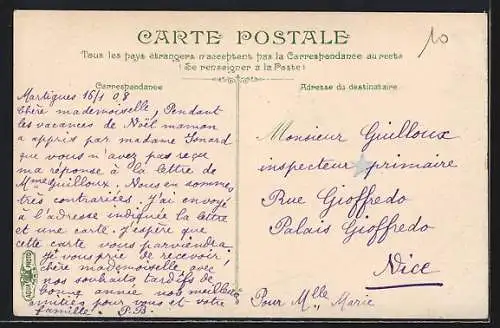 CARTE POSTALE
Tous les pays étrangers n'acceptent pas la Correspondance au recto
(Se renseigner à la Poste)
Correspondance
Martigues 16/1 08
Chère mademoiselle, Pendant
les vacances de Noël maman
a appris par madame Isnard
que vous n'avez pas reçu
ma réponse à la lettre de
Mme Guilloux. Nous en sommes
très contrariées. J'ai envoyé
à l'adresse indiquée la lettre
et une carte. J'espère que
cette carte vous parviendra.
Je vous prie de recevoir,
chère mademoiselle, avec
nos souhaits tardifs de
bonne année nos meilleures
amitiés pour vous et votre
famille. P.B.
Adresse du destinataire
Monsieur Guilloux
inspecteur primaire
Rue Gioffredo
Palais Gioffredo
Nice
Pour Mlle Marie
10